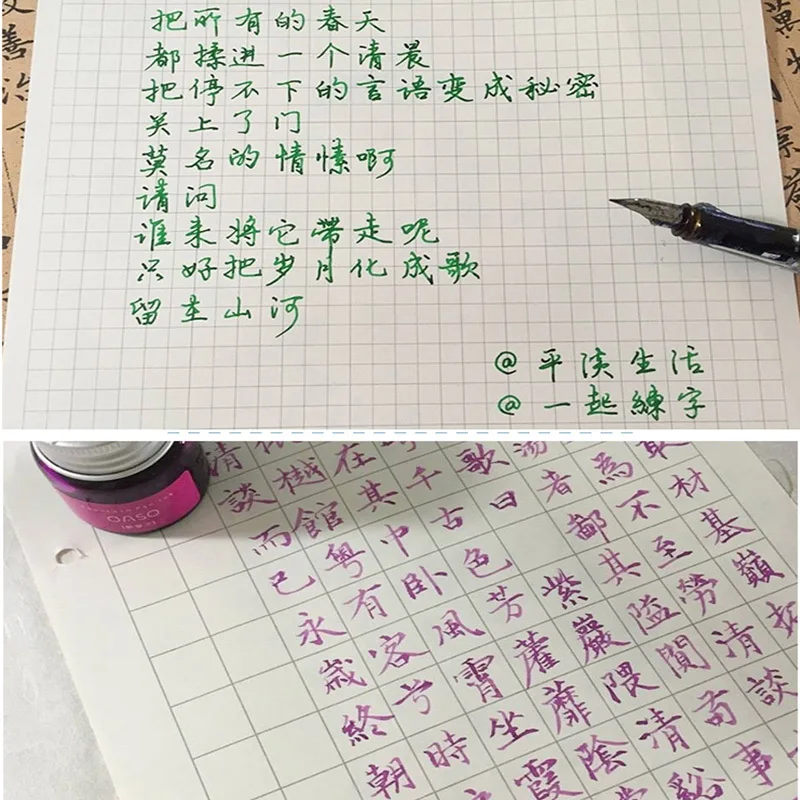 把所有的春天
都揉進一个清晨
把停不下的言語变成秘密
关上了门
莫名的情愫啊
请问
谁来将它帶走呢
只好把岁月化成歌
留在山河
@平淡生活
@一起練字
OASO
取材基巔
為不至勞清談
者鄙其隘閴苟事
歌曰紫巖隈清谿
千古色芳蘿靡陰
在其中臥風霄坐霞
樾館粵有客兮時
清談而已永歲終朝